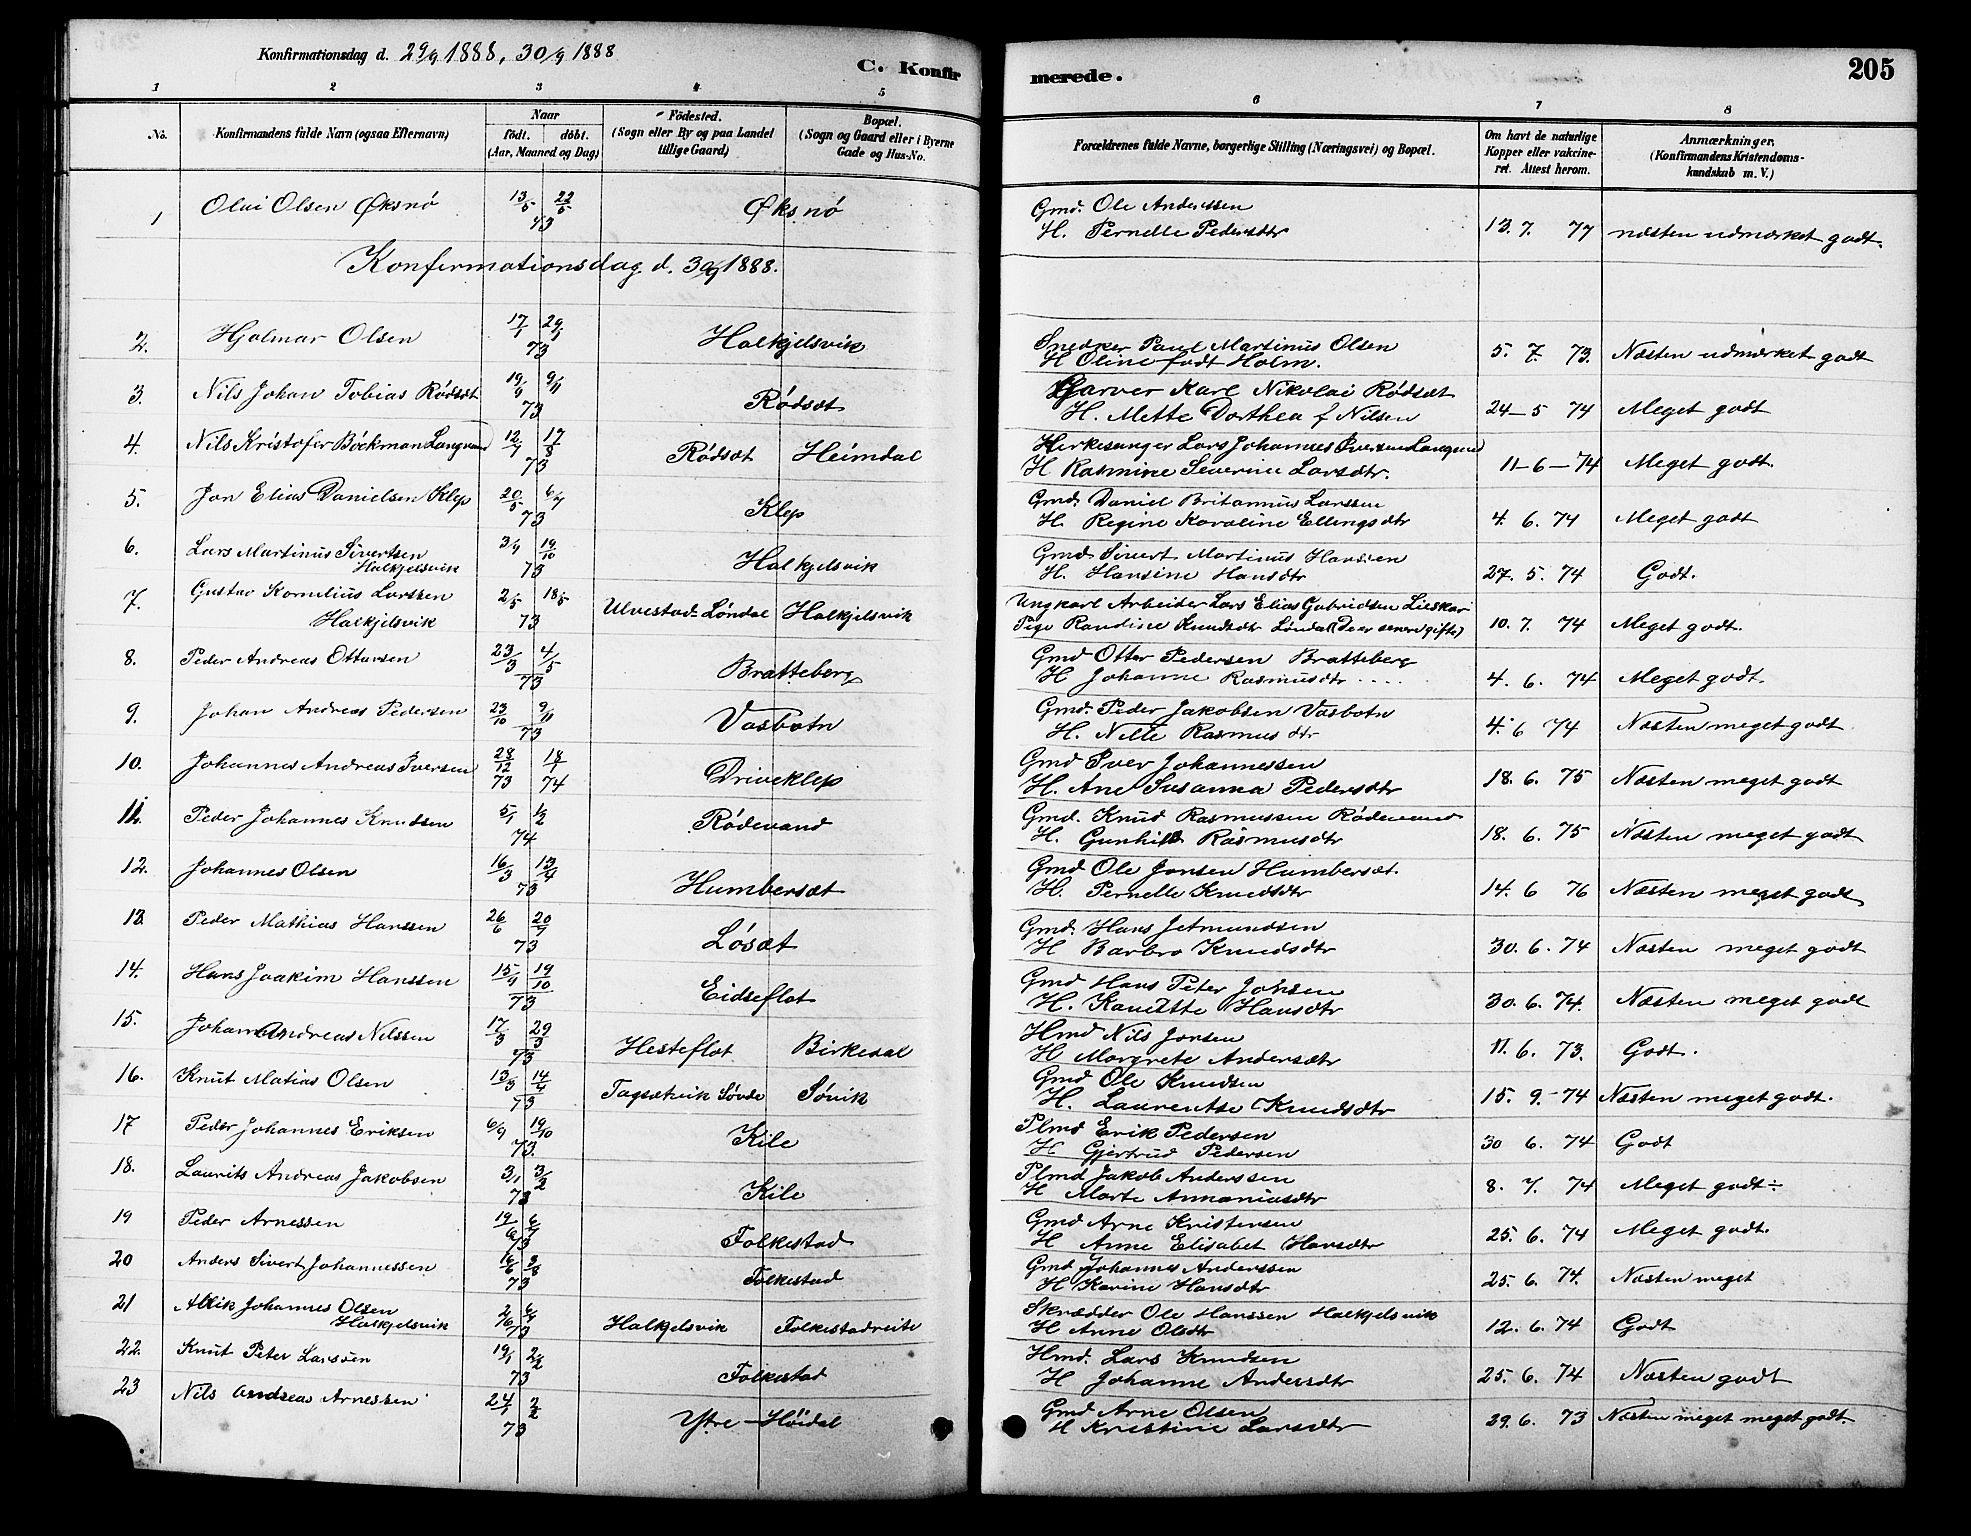 Konfirmationsdag d. 29/9 1888, 30/9 1888
C. Konfirmerede.
205
1 2 3 4 5 6 7 8
No.
Konfirmandens fulde Navn (ogsaa Efternavn)
Naar
födt. döbt.
(Aar, Maaned og Dag)
Födested.
(Sogn eller By og paa Landet
tillige Gaard)
Bopæl.
(Sogn og Gaard eller i Byerne
Gade og Hus-No.
Forældrenes fulde Navne, borgerlige Stilling (Næringsvei) og Bopæl.
Om havt de naturlige
Kopper eller vakcine-
ret. Attest herom.
Anmærkninger.
(Konfirmandens Kristendoms-
kundskab m. V.)
1 Olai Olsen Øksnö 13/5 22/5 73 Øksnö Gmd. Ole Anderssen
H. Pernelle Pedersdtr 13. 7. 77 næsten udmærket godt.
Konfermationsdag d. 30/9 1888.
2. Hjalmar Olsen 17/1 29/1 73 Halkjelsvik Snedker Paul Martinus Olsen
H Oline født Holm. 5. 7. 73. Næsten udmærket godt
3. Nils Johan Tobias Rødsæt 19/9 9/11 73 Rödsæt Garver Karl Nikolai Rødsæt
H. Mette Dorthea f Nilsen 24-5 74 Meget godt
4. Nils Kristofer Böckman Langnes 12/7 17/8 73 Rødsæt Heimdal Kirkesanger Lars Johannes Iversen
H Rasmine Severine Larsdtr. 11-6-74 Meget godt.
5. Jon Elias Danielsen Klep 20/5 6/7 73 Klep Gmd. Daniel Britannus Larssen
H. Regine Karoline Ellingsdtr 4. 6. 74 Meget godt
6. Lars Martinus Sivertsen
Halkjelsvik 3/9 19/10 73 Halkjelsvik Gmd Sivert Martinus Hanssen
H. Hansine Hansdtr 27. 5. 74 Godt.
7. Gustav Kornelius Larssen
Halkjelsvik 2/5 18/5 73 Ulvestad-Løndal Halkjelsvik Ungkarl Arbeider Lars Elias Gabrielsen Lieskar
Pige Randine Knudsdtr Løndal (De er senere gifte) 10. 7. 74 Meget godt.
8. Peder Andreas Ottersen 23/3 4/5 73 Bratteberg Gmd Otter Pedersen Bratteberg
H Johanne Rasmusdtr .... 4. 6. 74 Meget godt.
9. Johan Andreas Pedersen 23/10 9/11 73 Vasbotn Gmd. Peder Jakobsen Vasbotn
H. Nille Rasmusdtr 4. 6 74 Næsten meget godt
10. Johannes Andreas Iversen 28/12 73 18/1 74 Driveklep Gmd Iver Johannessen
H. Ane Susanna Pedersdtr 18. 6. 75 Næsten meget godt
11. Peder Johannes Knudsen 5/1 1/2 74 Rödevand Gmd. Knud Rasmussen Rødevand
H. Gunhild Rasmusdtr 18. 6. 75 Næsten meget godt
12. Johannes Olsen 16/3 13/4 73 Humbersæt Gmd Ole Jonsen Humbersæt.
H. Pernelle Knudsdtr 14. 6 76 Næsten meget godt
13. Peder Mathias Hanssen 26/6 20/7 73 Løsæt Gmd. Hans Jetmundsen
H Barbro Knudsdtr 30. 6. 74 Næsten meget godt
14. Hans Joakim Hanssen 15/9 19/10 73 Eidseflot Gmd Hans Peter Johsen
H. Hansdtr 30. 6. 74. Næsten meget godt
15. Johannes Andreas Nilssen 17/3 29/3 73 Hesteflot Birkedal Hmd Nils Jonsen
H Margrete Andersdtr 11. 6. 73. Godt.
16. Knut Matias Olsen 13/3 14/4 73 Tagsætvik Søvde Søvik Gmd Ole Knudsen
H. Laurentse Knudsdtr 15. 9.-74 Næsten meget godt.
17 Peder Johannes Eriksen 6/9 19/10 73. Kile Plmd Erik Pedersen
H Gjertrud Pedersen 30 6. 74 Godt
18. Laurits Andreas Jakobsen 3/1 3/2 73 Kile Plmd Jakob Anderssen
H Marte Annaniasdtr 8. 7. 74 Meget godt ÷
19 Peder Arnessen 19/6 6/7 73 Folkestad Gmd Arne Kristensen
H Anne Elisabet Hansdtr 25. 6. 74 Meget godt.
20 Anders Sivert Johannessen 16/6 3/8 73 Folkestad Gmd Johannes Anderssen
H Karine Hansdtr 25. 6. 74. Næsten meget
21 Johannes Olsen
Halkjelsvik 2/6 6/7 73 Halkjelsvik Folkestadreite Skrædder Ole Hanssen Halkjelsvik
H Anne Olsdtr 12. 6. 74 Godt
22. Knut Peter Larssen 19/1 2/2 73 Folkestad Hmd. Lars Knudsen
H Johanne Andersdtr 25. 6. 74 Næsten godt
23 Nils Andreas Arnessen 24/1 2/2 73 Ytre-Høidal Gmd Arne Olsen
H Kristine Larsdtr 29. 6. 73 Næsten meget meget godt.